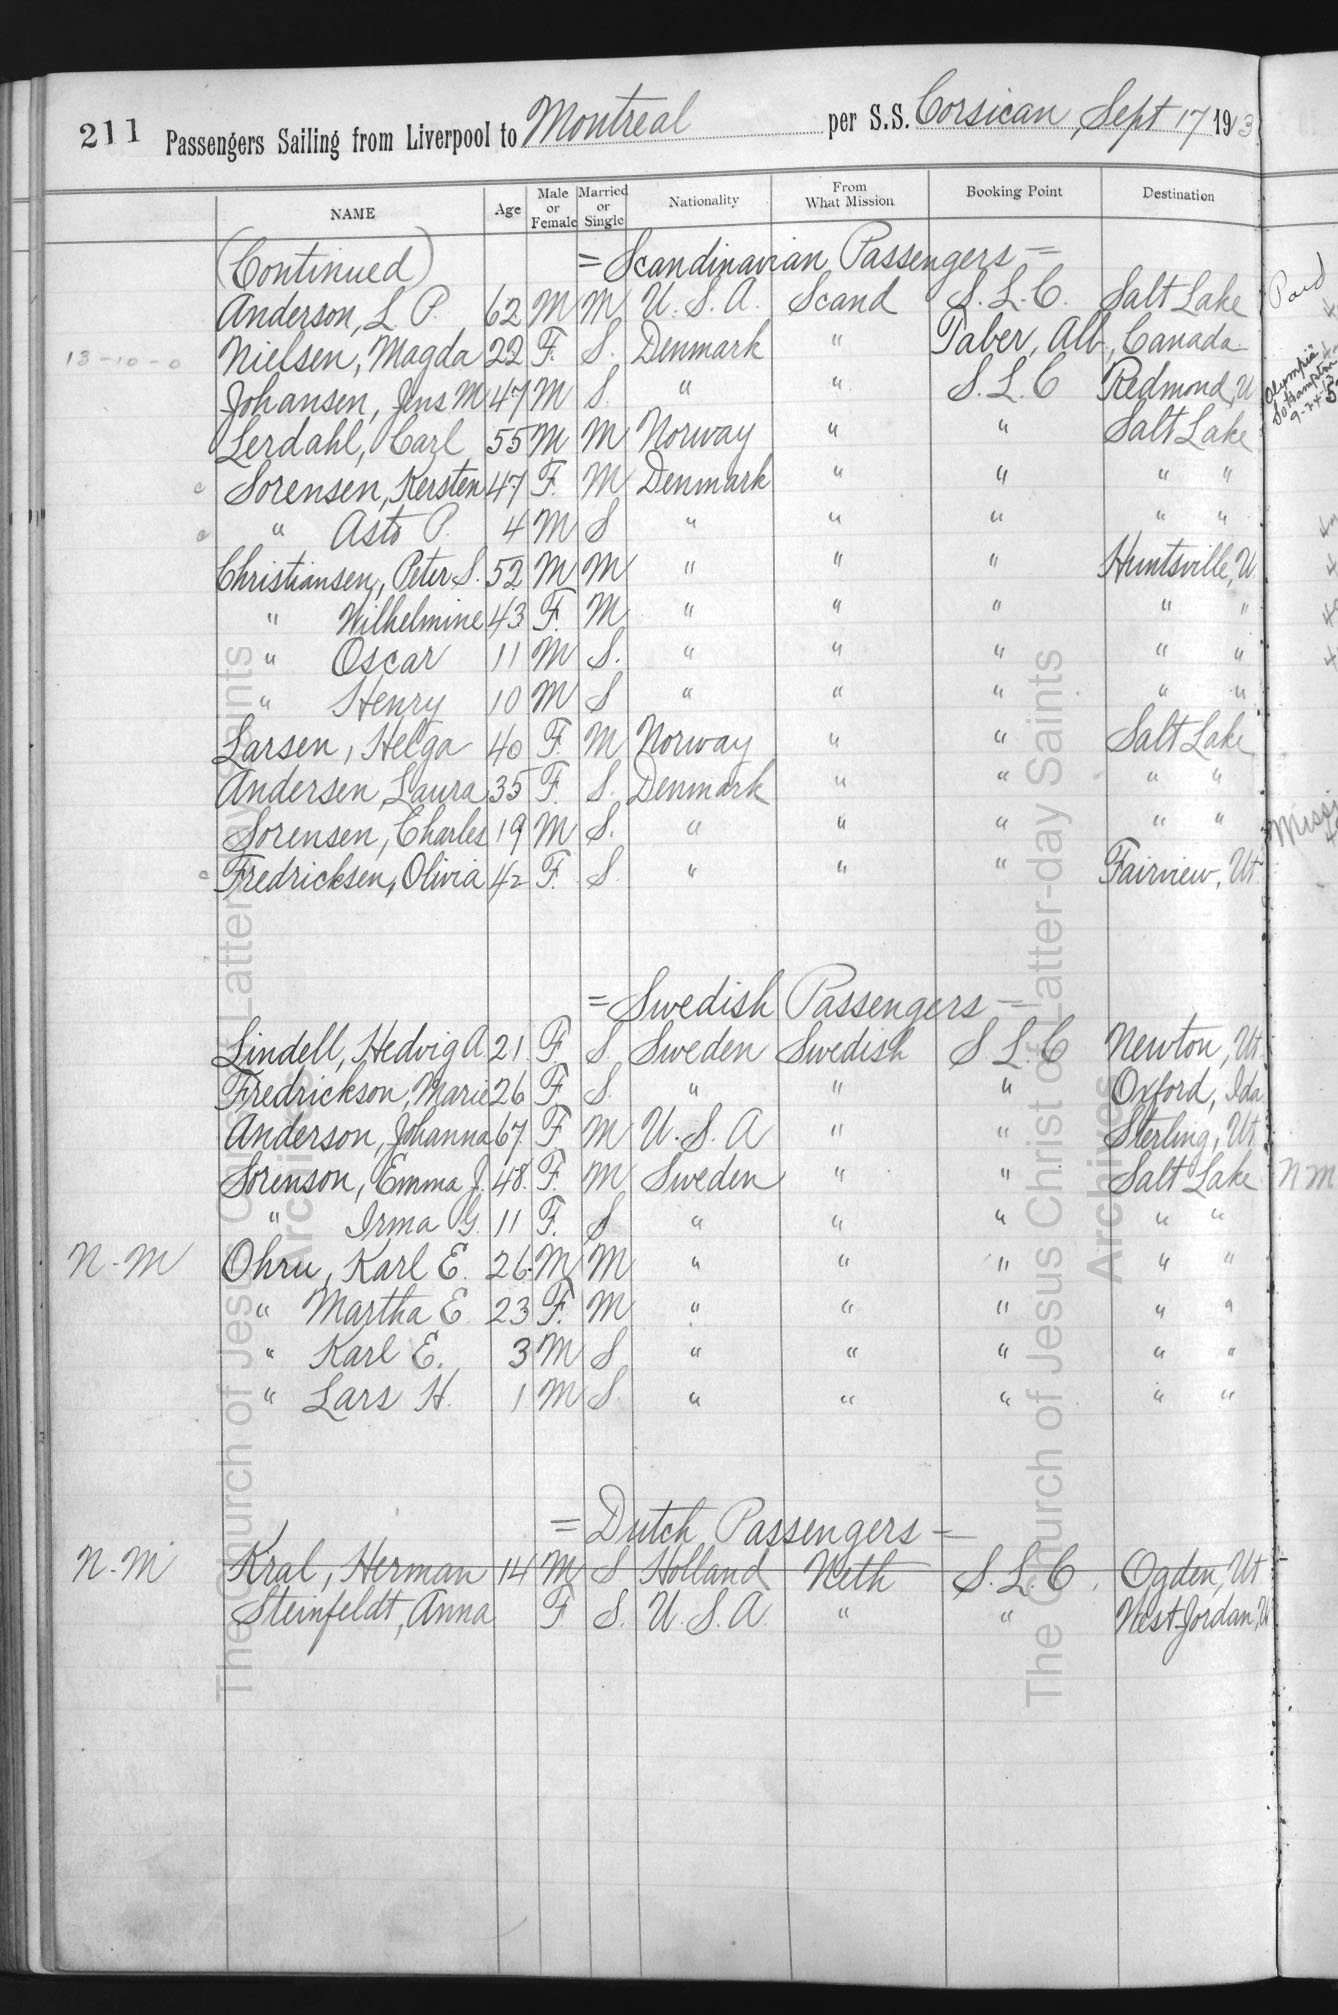 211 Passengers Sailing from Liverpool to Montreal per S.S. Corsican, Sept 17 1913
NAME Age Male or Female Married or Single Nationality From What Mission Booking Point Destination
(Continued) = Scandinavian Passengers =
Anderson, L. P. 62 M M U.S.A. Scand S.L.C. Salt Lake Paid
13-10-0 Nielsen, Magda 22 F. S. Denmark " Taber, Alb, Canada
Johansen, Jens M 47 M S. " " S.L.C Redmond, U
Olympic
So Hampton
9-24-13
Lerdahl, Carl 55 M M Norway " " Salt Lake
c Sorensen, Kersten 47 F. M Denmark " " " "
c " Asto P. 4 M S " " " " "
Christiansen, Peter S. 52 M M " " " Huntsville, U
" Wilhelmine 43 F. M " " " " "
" Oscar 11 M S. " " " " "
" Henry 10 M S " " " " "
Larsen, Helga 40 F. M Norway " " Salt Lake
Andersen, Laura 35 F. S. Denmark " " " "
Sorensen, Charles 19 M S. " " " " "
c Fredricksen, Olivia 42 F. S. " " " Fairview, Ut
= Swedish Passengers =
Lindell, Hedvig A. 21 F S. Sweden Swedish S.L.C Newton, Ut
Fredrickson, Marie 26 F S. " " " Oxford, Ida
Anderson, Johanna 67 F M U.S.A " " Sterling, Ut
Sorenson, Emma J. 48 F. M Sweden " " Salt Lake N M
" Irma G. 11 F. S " " " " "
N-M Ohru, Karl E. 26 M M " " " " "
" Martha E 23 F. M " " " " "
" Karl E. 3 M S " " " " "
" Lars H. 1 M S. " " " " "
= Dutch Passengers =
N-M Kral, Herman 14 M S Holland Neth S.L.C. Ogden, Ut
Steinfeldt, Anna F S. U.S.A. " " West Jordan, U
The Church of Jesus Christ of Latter-day Saints
Archives
The Church of Jesus Christ of Latter-day Saints
Archives